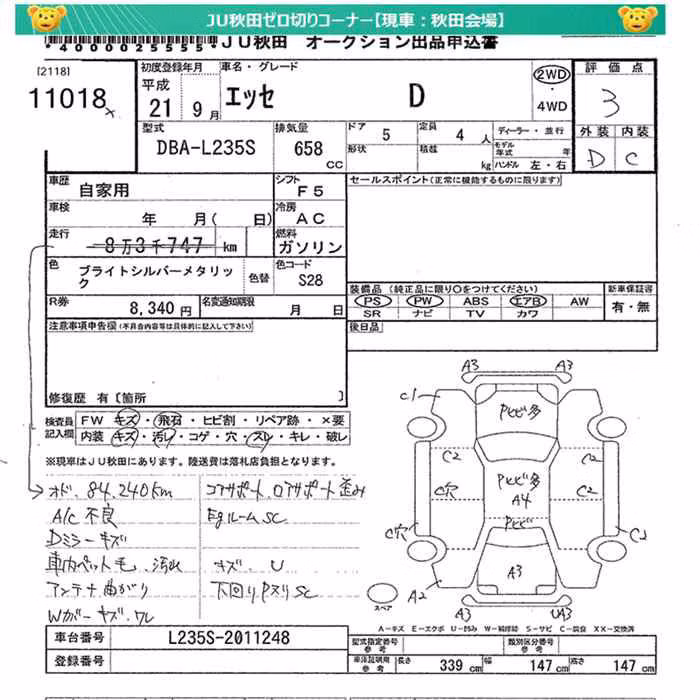 JU秋田ゼロ切りコーナー【現車：秋田会場】
*40000025555* JU秋田 オークション出品申込書
[2118]
11018
初度登録年月
平成
21 9 月
車名・グレード
エッセ D
2WD
・
4WD
評価点
3
外装 内装
D C
型式
DBA-L235S
排気量
658 CC
ドア 5
定員 4 人
ディーラー・並行
形状
積載 kg
モデル年式 年
ハンドル 左・右
車歴 自家用
シフト F5
セールスポイント(正常に機能するものに限ります)
車検 年 月( 日)
冷房 AC
走行 8万3千747 km
燃料 ガソリン
色 ブライトシルバーメタリック
色替
色コード S28
装備品 (純正品に限り〇をつけてください)
新車保証書
PS PW ABS エアB AW
SR ナビ TV カワ
有・無
R券 8,340円
名変通知期限 月 日
後日品
注意事項申告欄(不具合内容等は具体的に記入して下さい)
修復歴 有 [箇所 ]
検査員記入欄
FW キズ・飛石・ヒビ割・リペア跡・×要
内装 キズ・汚レ・コゲ・穴・スレ・キレ・破レ
※現車はJU秋田にあります。陸送費は落札店負担となります。
オド. 84,240km
コアサポート、ロアサポート歪み
A/C 不良
Egルーム SC
Dミラー キズ
車内ペット毛、汚れ
キズ、U
アンテナ曲がり
下回りPスリ SC
Wガー キズ、ワレ
A3 A3
C1
Pヒビ多
C2 C2
C穴
Pヒビ多
A4
C2
Pヒビ
C穴 C2
A3
A2
スペア
A3 UA3
A－キズ E－エクボ U－凹み W－補修跡 S－サビ C－腐食 XX－交換済
車台番号 L235S-2011248
登録番号
型式指定番号 参考
類別区分番号 参考
車庫証明用 参考
長さ 339 cm
幅 147 cm
高さ 147 cm